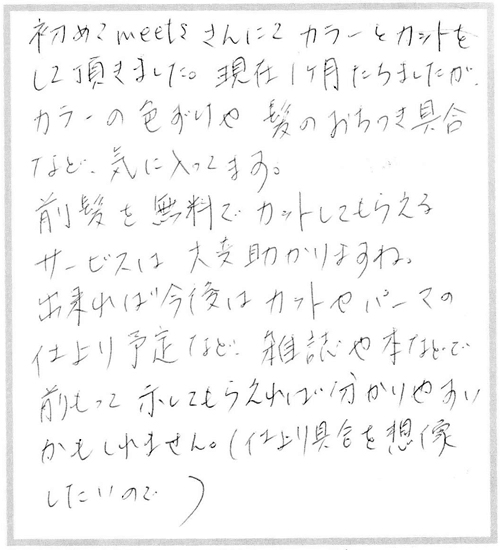 初めてmeetsさんにて カラーとカットを
して頂きました。現在1ヶ月たちましたが、
カラーの色おちや 髪のおちつき具合
など、気に入ってます。
前髪を無料でカットしてもらえる
サービスは 大変助かりますね。
出来れば今後は カットやパーマの
仕上り予定など、雑誌や本などで
前もって 示してもらえれば分かりやすい
かもしれません。(仕上り具合を想像
したいので)